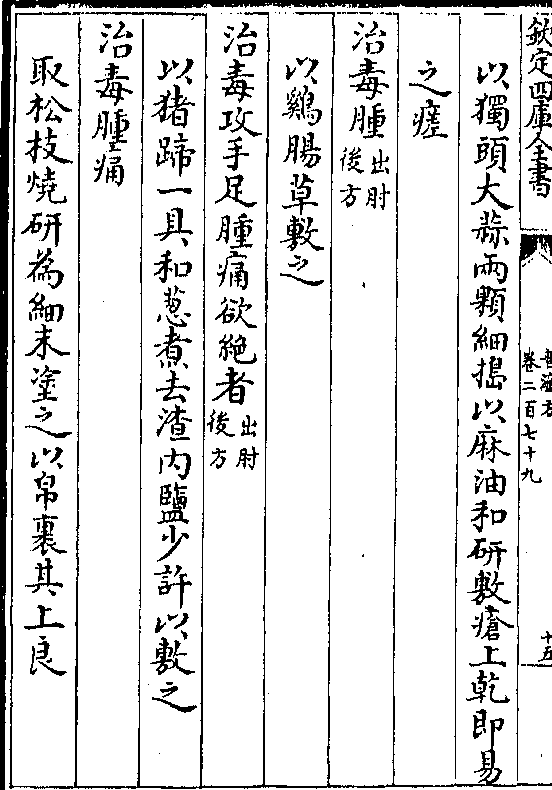 欽定四庫全書
普濟方
卷二百七十九
十五
以獨頭大蒜兩顆細搗以麻油和研敷瘡上乾即易
之瘥
治毒腫出肘後方
以鷄腸草敷之
治毒攻手足腫痛欲絶者出肘後方
以猪蹄一具和葱煮去渣内鹽少許以敷之
治毒腫痛
取松枝燒研為細末塗之以帛裹其上良